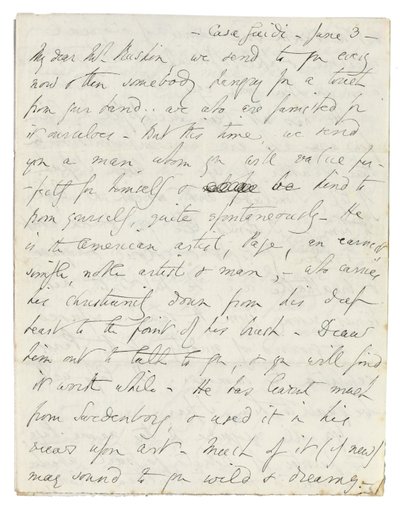 - Casa Guidi - June 3 -
My dear Mr. Ruskin, we send to you every
now & then somebody hungry for a touch
from your hand,.. we who are famished for
it ourselves - But this time, we send
you a man whom you will value per-
-fectly for himself & be kind to
from yourself, quite spontaneously - He
is the American artist, Page, an earnest
simple, noble artist & man, - who carries
his christianity down from his deep
heart to the point of his brush - Draw
him out to talk to you, & you will find
it worth while - He has learnt much
from Swedenborg, & used it in his
views upon art - Much of it (if new)
may sound to you wild & dreamy -